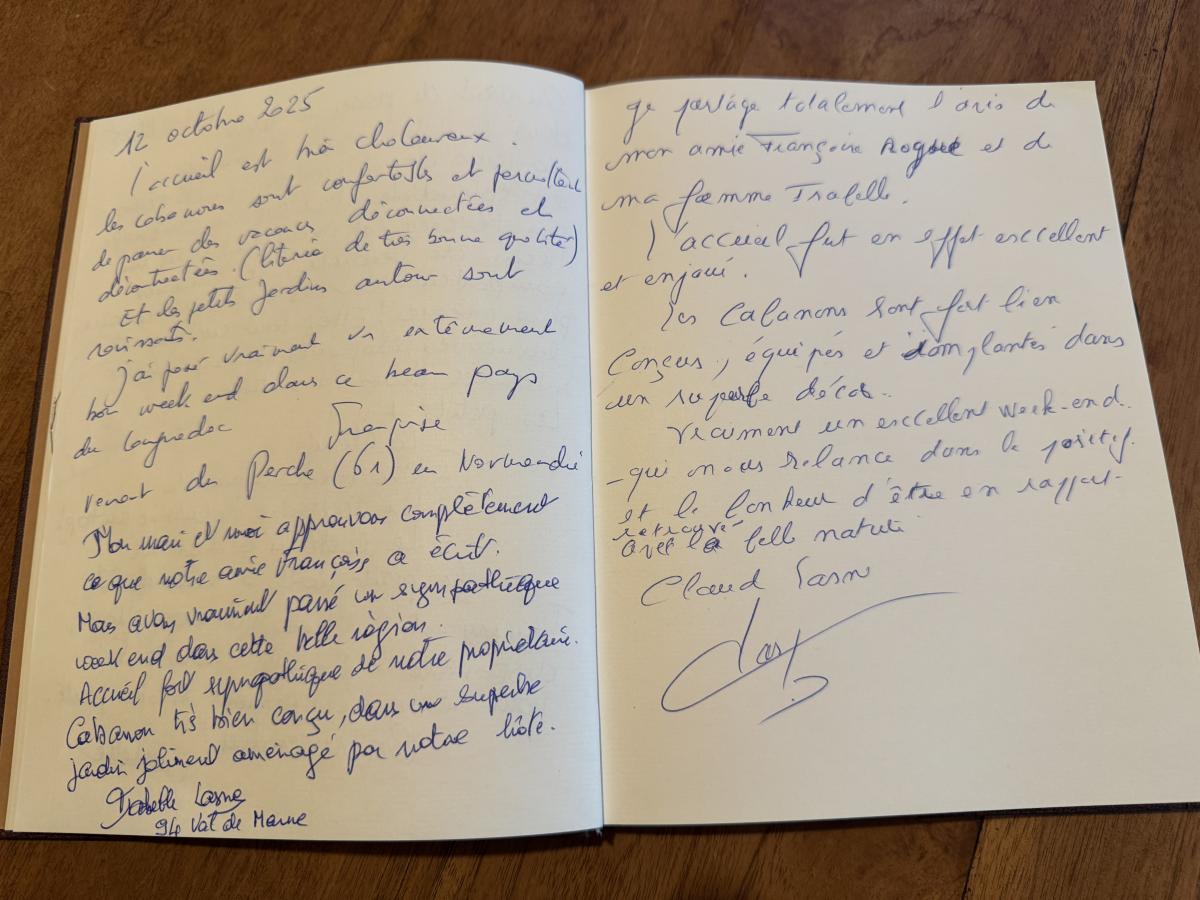 12 octobre 2025
l'accueil est très chaleureux.
les cabanons sont confortables et permettent
de passer des vacances déconnectées et
décontractées. (literie de très bonne qualité)
Et les petits jardins autour sont
ravissants.
j'ai passé vraiment un extrêmement
bon week end dans ce beau pays
du Languedoc Françoise
venant du Perche (61) en Normandie
Mon mari et moi approuvons complètement
ce que notre amie Françoise a écrit.
Nous avons vraiment passé un sympathique
week end dans cette belle région.
Accueil fort sympathique de notre propriétaire.
Cabanon très bien conçu, dans un superbe
jardin joliment aménagé par notre hôte.
Isabelle Lasne
94 Val de Marne
Je partage totalement l'avis de
mon amie Françoise et de
ma femme Isabelle.
l'accueil fut en effet excellent
et enjoué.
les Cabanons sont fort bien
Conçus, équipés et implantés dans
un superbe décor.
Vraiment un excellent week-end.
qui nous relance dans le positif
et le bonheur d'être en rapport
retrouvé
avec la belle nature
Claud Lasne